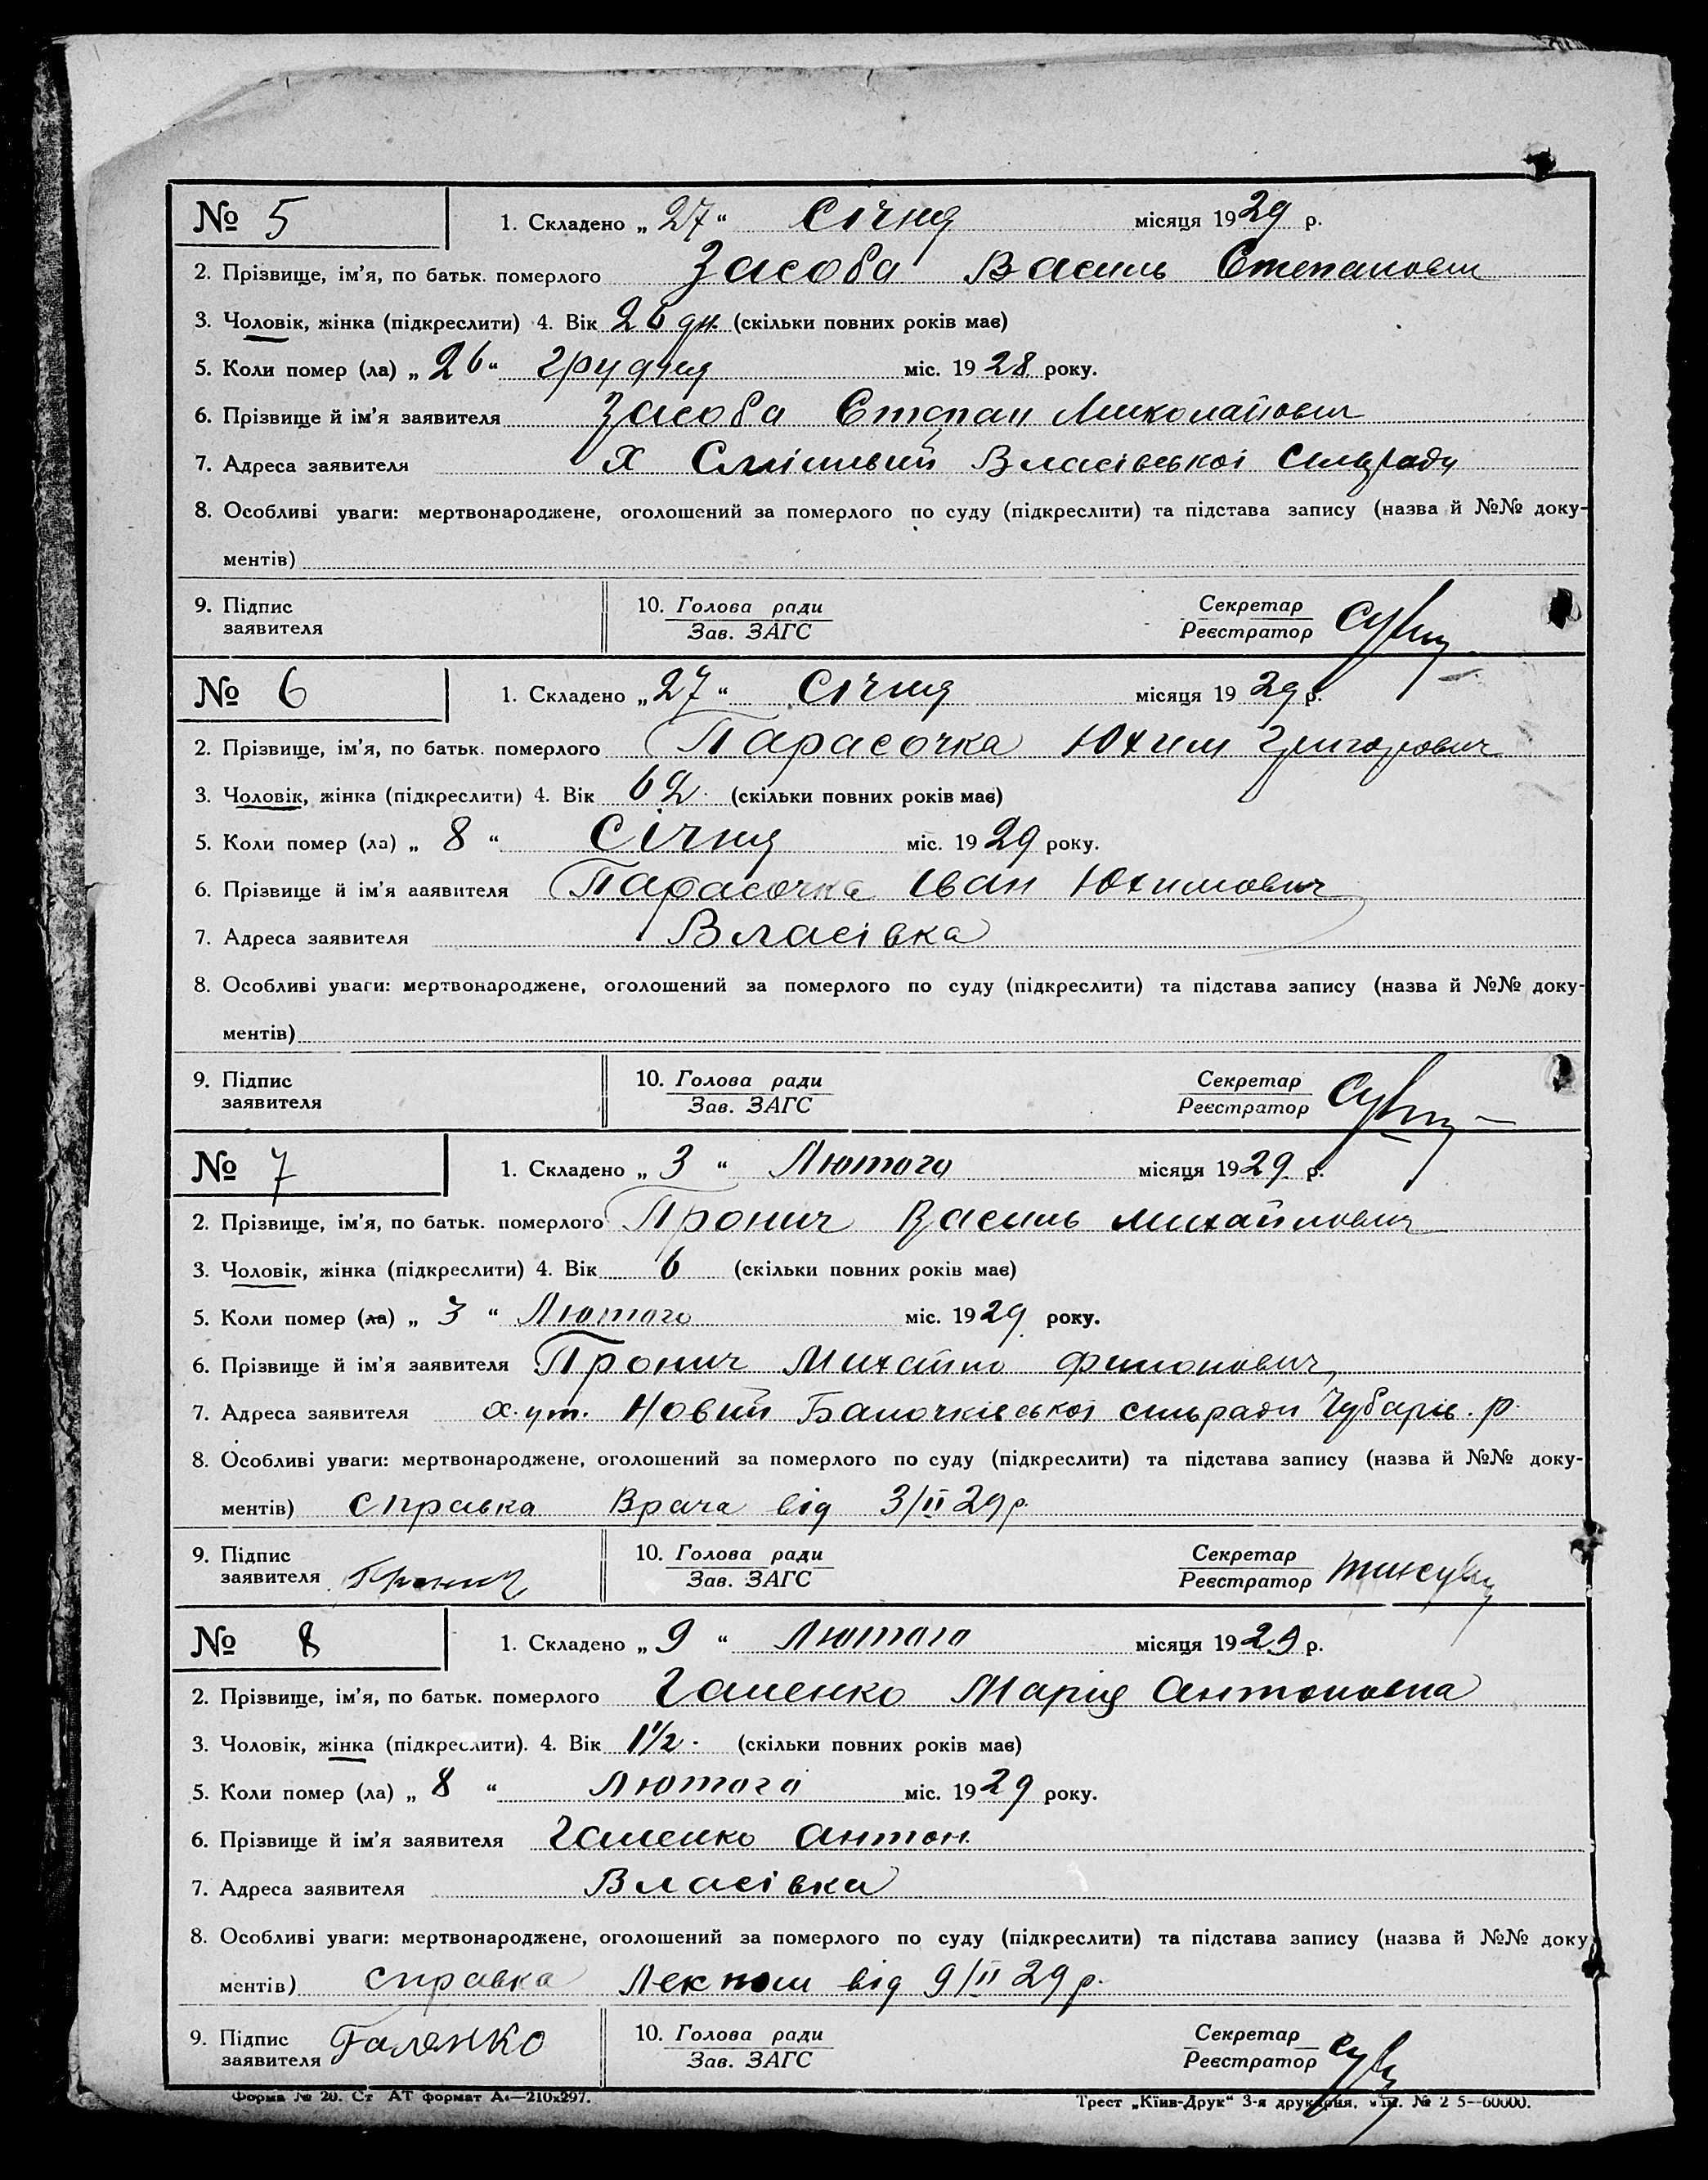 № 5 1. Складено „27“ Січня місяця 1929 р.
2. Прізвище, ім'я, по батьк. померлого Засоба Василь Степанович
3. Чоловік, жінка (підкреслити) 4. Вік 26 дн. (скільки повних років має)
5. Коли помер (ла) „26“ грудня міс. 1928 року.
6. Прізвище й ім'я заявителя Засоба Степан Миколайович
7. Адреса заявителя х Власівської Сільради
8. Особливі уваги: мертвонароджене, оголошений за померлого по суду (підкреслити) та підстава запису (назва й №№ доку-
ментів)
9. Підпис заявителя 10. Голова ради Зав. ЗАГС Секретар Реєстратор
№ 6 1. Складено „27“ Січня місяця 1929 р.
2. Прізвище, ім'я, по батьк. померлого Парасочка Юхим Григорович
3. Чоловік, жінка (підкреслити) 4. Вік 62. (скільки повних років має)
5. Коли помер (ла) „8“ Січня міс. 1929 року.
6. Прізвище й ім'я заявителя Парасочка Іван Юхимович
7. Адреса заявителя Власівка
8. Особливі уваги: мертвонароджене, оголошений за померлого по суду (підкреслити) та підстава запису (назва й №№ доку-
ментів)
9. Підпис заявителя 10. Голова ради Зав. ЗАГС Секретар Реєстратор
№ 7 1. Складено „3“ Лютого місяця 1929 р.
2. Прізвище, ім'я, по батьк. померлого Пронич Василь Михайлович
3. Чоловік, жінка (підкреслити) 4. Вік 6 (скільки повних років має)
5. Коли помер (ла) „3“ Лютого міс. 1929 року.
6. Прізвище й ім'я заявителя Пронич Михайло Филонович
7. Адреса заявителя х.ут. Новий Балочківської сільради Чубарів. р.
8. Особливі уваги: мертвонароджене, оголошений за померлого по суду (підкреслити) та підстава запису (назва й №№ доку-
ментів) справка Врача від 3/II 29 р.
9. Підпис заявителя Пронич 10. Голова ради Зав. ЗАГС Секретар Реєстратор
№ 8 1. Складено „9“ Лютого місяця 1929 р.
2. Прізвище, ім'я, по батьк. померлого Галенко Марія Антоновна
3. Чоловік, жінка (підкреслити). 4. Вік 1½. (скільки повних років має)
5. Коли помер (ла) „8“ Лютого міс. 1929 року.
6. Прізвище й ім'я заявителя Галенко Антон.
7. Адреса заявителя Власівка
8. Особливі уваги: мертвонароджене, оголошений за померлого по суду (підкреслити) та підстава запису (назва й №№ доку
ментів) справка Лекпом від 9/II 29 р.
9. Підпис заявителя Галенко 10. Голова ради Зав. ЗАГС Секретар Реєстратор
Форма № 20. Ст АТ формат А4—210х297. Трест „Київ-Друк“ 3-я друкарня,